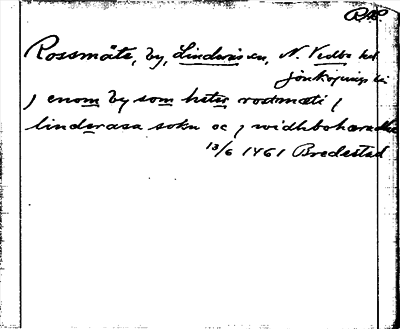 Rossmåla, by, Linderås sn, N. Vedbo hd
Jönköpings län
j enom by som heter rostmæli j
linderasa sokn oc j widhbohæradhe
13/6 1461 Bredestad